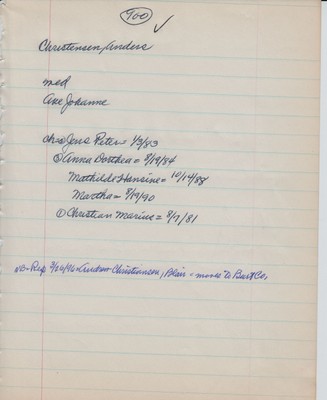 700
Christensen, Anders
med
Ane Johanne
ch = ② Jens Peter = 1/3/83
③ Anna Dorthea = 8/19/84
Mathilde Hansine = 10/14/88
Martha = 8/19/90
① Christian Marius = 8/7/81
NB = Rep Andrew Christiansen, Blair = moves to Burt Co.